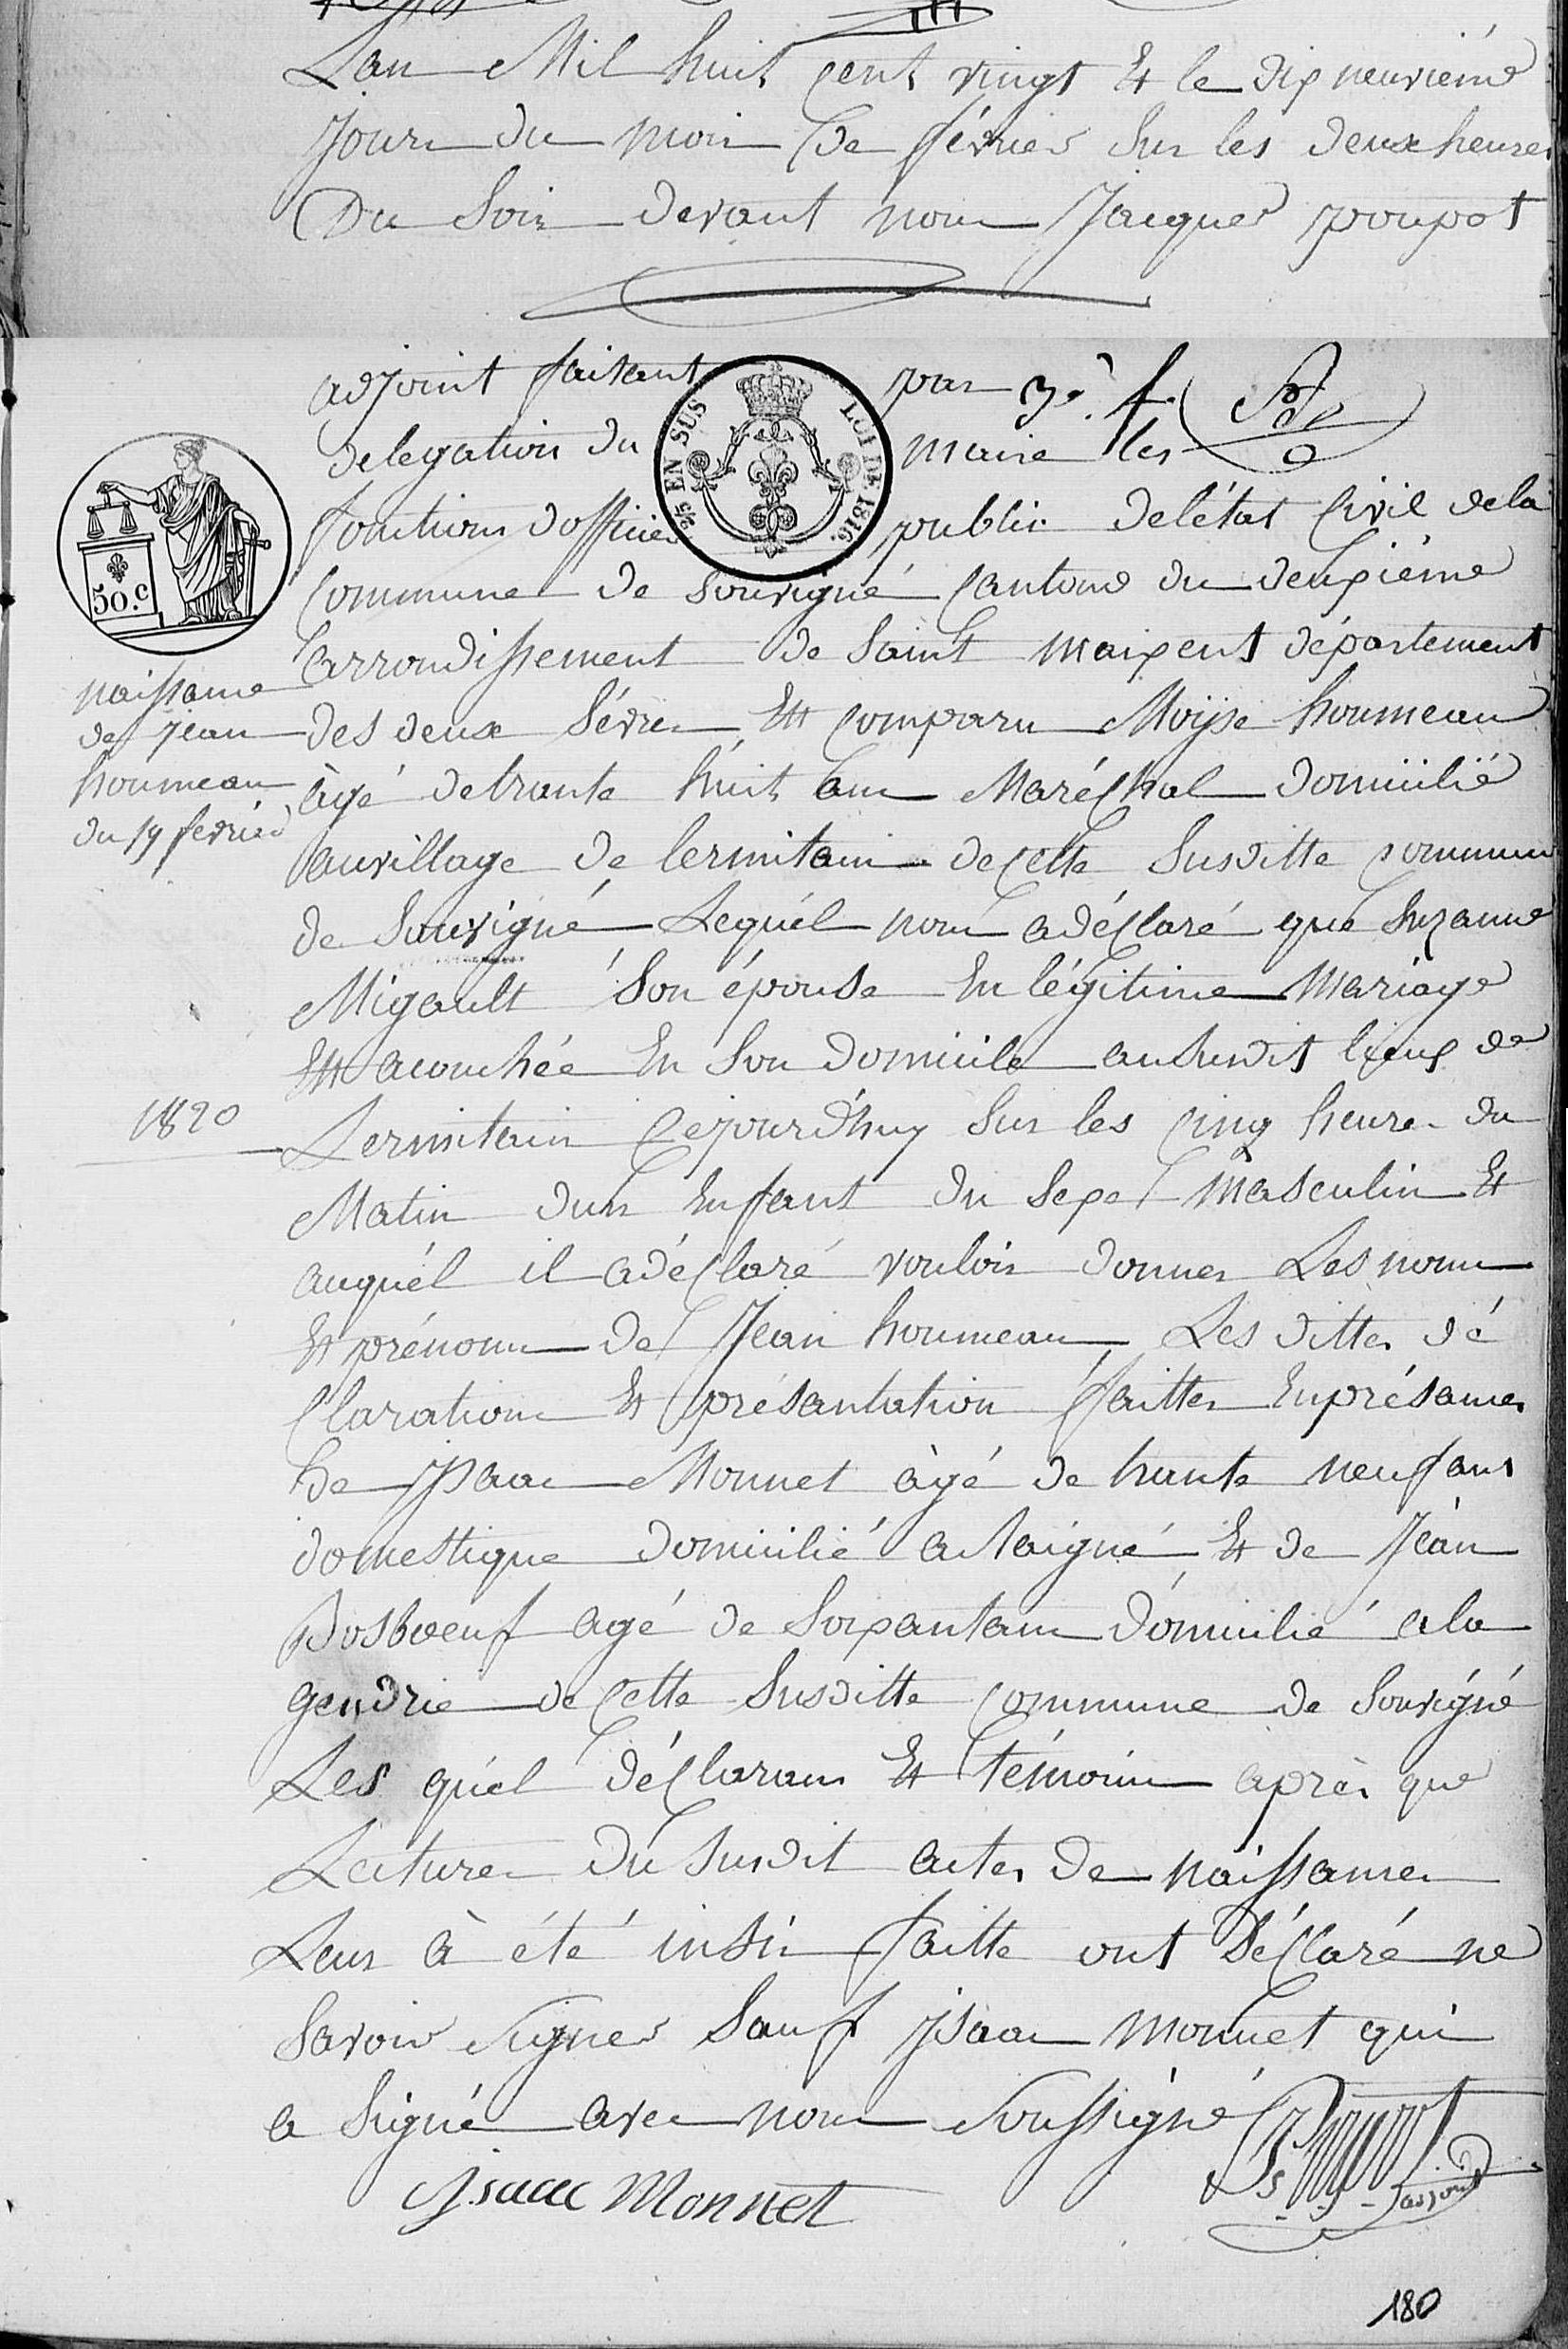 Lan Mil huit cent vingt Et le dix neuvième
Jour du mois de février Sur les deux heures
Du Soir devant nous Jacques poupot
adjoint faisant par 3e. f.
délégation du maire les
fonctions d'officier public de l'état Civil de la
Commune de Souvigné Canton du deuxième
arrondissement de Saint maixent département
des deux Sèvres Est comparu Moÿse houmeau
âgé de trante huit ans Maréchal domicilié
au village de lermitain de cette Susditte commune
de Souvigné Lequél nous a déclaré que Suzanne
Migault Son épouse En légitime Mariage
Est acouchée En Son domicile au susdit lieux de
Lermitain Cejourd'huy Sur les Cinq heures du
Matin dun Enfant du Sexe masculin Et
auquél il a déclaré vouloir donner Les noms
Et prénoms de Jean houmeau Les dittes dé
Claration Et présantation faittes En présances
De Isaac Monnet âgé de trante neuf ans
domestique domicilié a taigné Et de Jean
Bosboeuf agé de Soixantans domicilié a la
gendrie de Cette Susditte commune de Souvigné
Les quél déClarans Et témoins après que
Lecture Du Susdit actes De naissances
Leur à été insi faitte ont DéClaré ne
Savoir Signer Sauf jsaac monnet qui
a Signé avec nous Soussigné
Jsaac Monnet
adjoint
EN SUS
LOI DE 1816.
50.c
naissance
de Jean
houmeau
du 19 février
1820
180